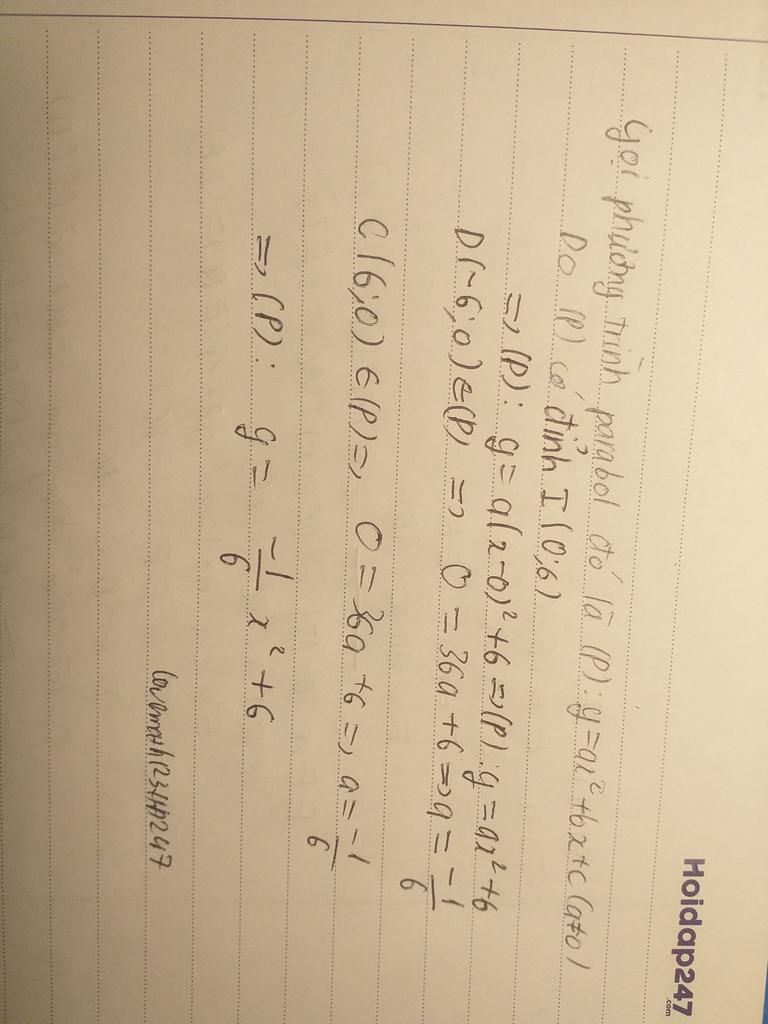 Hoidap247
.com
Gọi phương trình parabol đó là (P): y=ax²+bx+c (a≠0)
Do (P) có đỉnh I(0;6)
=> (P): y=a(x-0)²+6 => (P): y=ax²+6
D(-6;0)∈(P) => 0=36a+6 => a=-1/6
C(6;0)∈(P) => 0=36a+6 => a=-1/6
=> (P): y=-1/6 x²+6